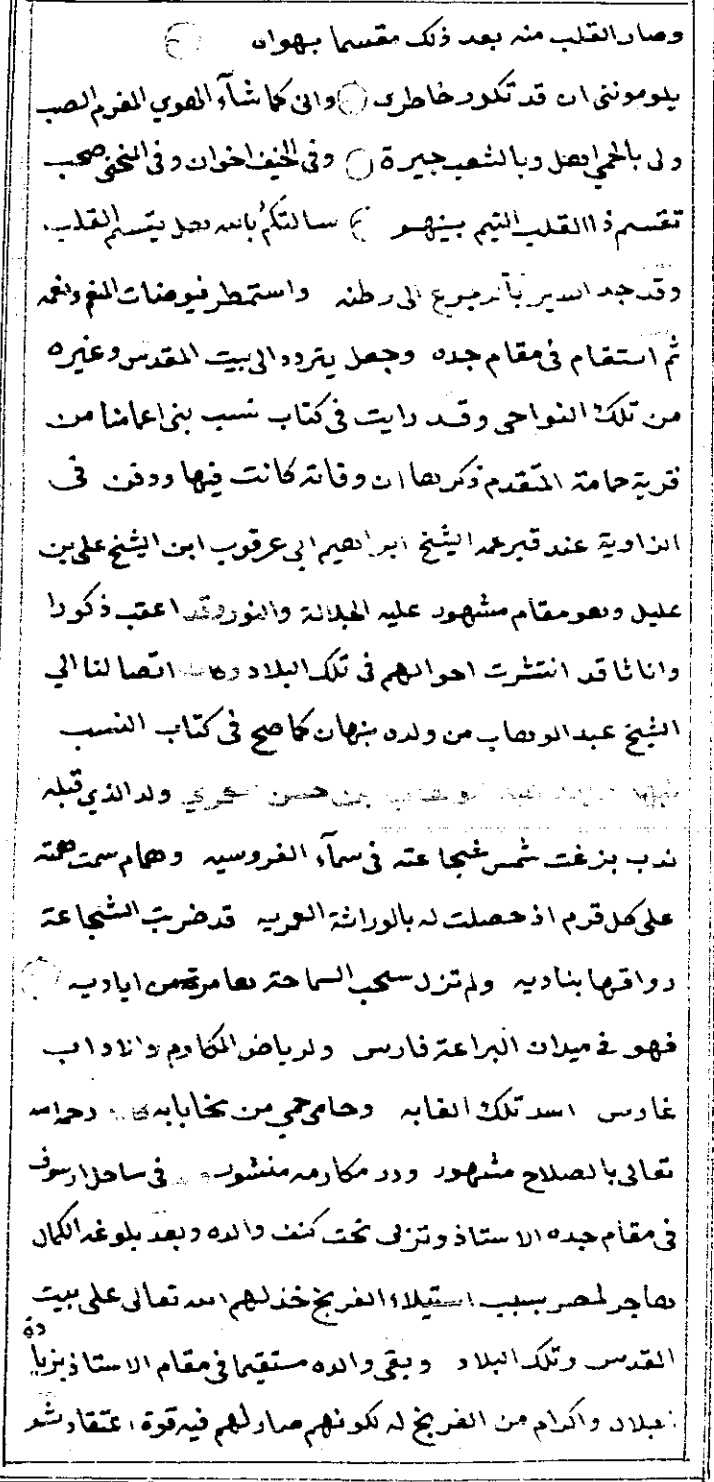 وصار القلب منه بعد ذلك مقسما بهواه
يلوموننى ان قد تكدر خاطرى وانى كما شآء الهوي المغرم الصب
ولى بالحمي اهل وبالشعب جيرة وفى الخيف اخوان وفى المنحنى صحب
تقسم ذا القلب المتيم بينهمو سالتكم بالله هل يقسم القلب
وقد جد السير بالرجوع الى وطنه واستمطر فيوضات المنعم ونعمه
ثم استقام فى مقام جده وجعل يتردد الى بيت المقدس وغيره
من تلك النواحى وقد رايت فى كتاب نسب بنى اعمامنا من
قرية حمامة المتقدم ذكرها ان وفاته كانت فيها ودفن فى
الزاوية عند قبر عمه الشيخ ابراهيم ابى عرقوب ابن الشيخ على بن
عليل وهو مقام مشهور عليه الجلالة والنور وقد اعقب ذكورا
واناثا قد انتشرت احوالهم فى تلك البلاد اتصالنا الي
الشيخ عبد الوهاب من ولده نبهان كما صح فى كتاب النسب
بن حسن العمري ولد الذي قبله
ندب بزغت شمس شجاعته فى سمآء الفروسيه وهمام سمت همته
على كل قرم اذ حصلت له بالوراثة العمريه قد ضربت الشجاعة
رواقها بناديه ولم تزل سحب السماحة هامرة من اياديه
فهو فى ميدان البراعة فارس ولرياض المكارم والاداب
غارس اسد تلك الغابه وحامى حمي من رحمه الله
تعالى بالصلاح مشهور ودر مكارمه منشور فى ساحل ارسوف
فى مقام جده الاستاذ وتربى تحت كنف والده وبعد بلوغه الكمال
هاجر لمصر بسبب استيلاء الفرنج خذلهم الله تعالى على بيت
المقدس وتلك البلاد وبقى والده مستقيما فى مقام الاستاذ بزيادة
اجلال واكرام من الفرنج له لكونهم صار لهم فيه قوة اعتقاد